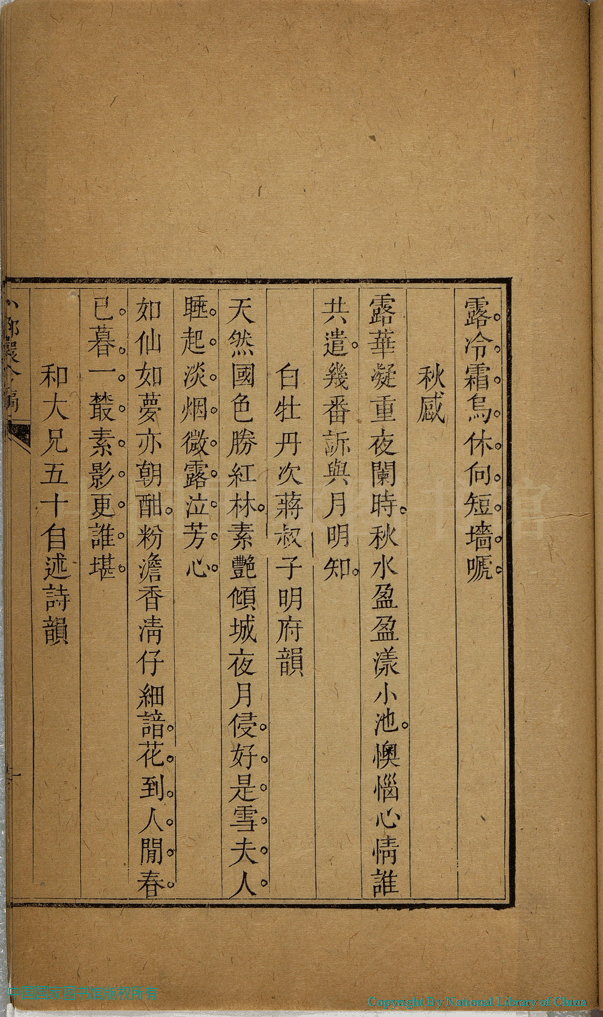 露冷霜烏休向短墻嗁
秋感
露華凝重夜闌時秋水盈盈漾小池懊惱心情誰
共遣幾番訴與月明知
白牡丹次蔣叔子明府韻
天然國色勝紅林素艷傾城夜月侵好是雪夫人
睡起淡烟微露泣芳心
如仙如夢亦朝酣粉澹香淸仔細諳花到人閒春
已暮一叢素影更誰堪
和大兄五十自述詩韻
Copyright By National Library of China